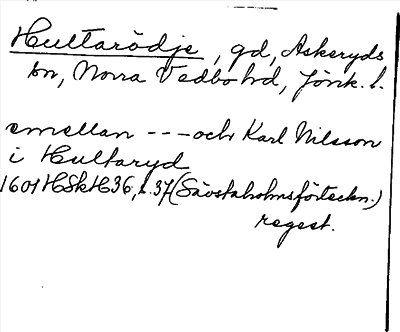 Hultarödje, gd, Askeryds
sn, Norra Vedbo hd, Jönk. l.
emellan --- och Karl Nilsson
i Hultaryd
1601 HSkH36, s. 37 (Sävstaholmsförteckn.)
regest.